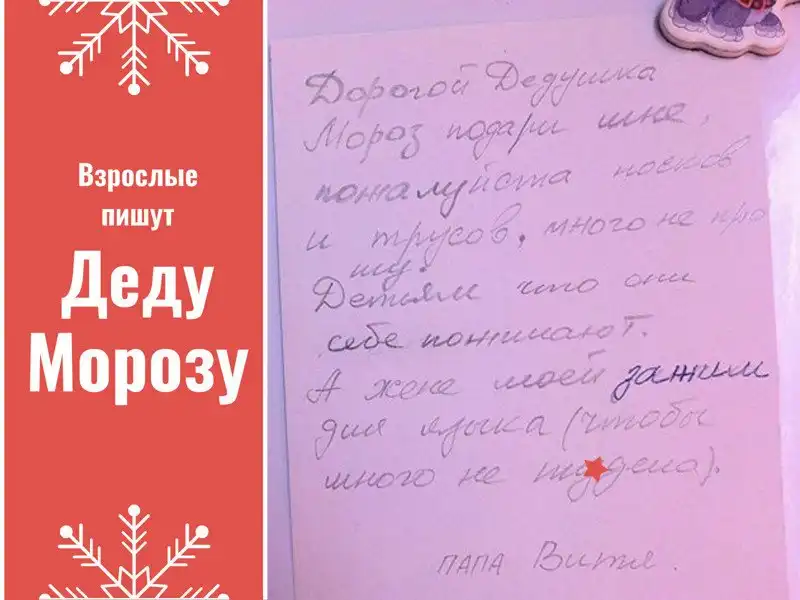 Взрослые
пишут
Деду
Морозу
Дорогой Дедушка
Мороз подари мне,
пожалуйста носков
и трусов, много не про
шу.
Детям что они
себе пожелают.
А жене моей зажим
для языка (чтобы
много не
папа Витя.